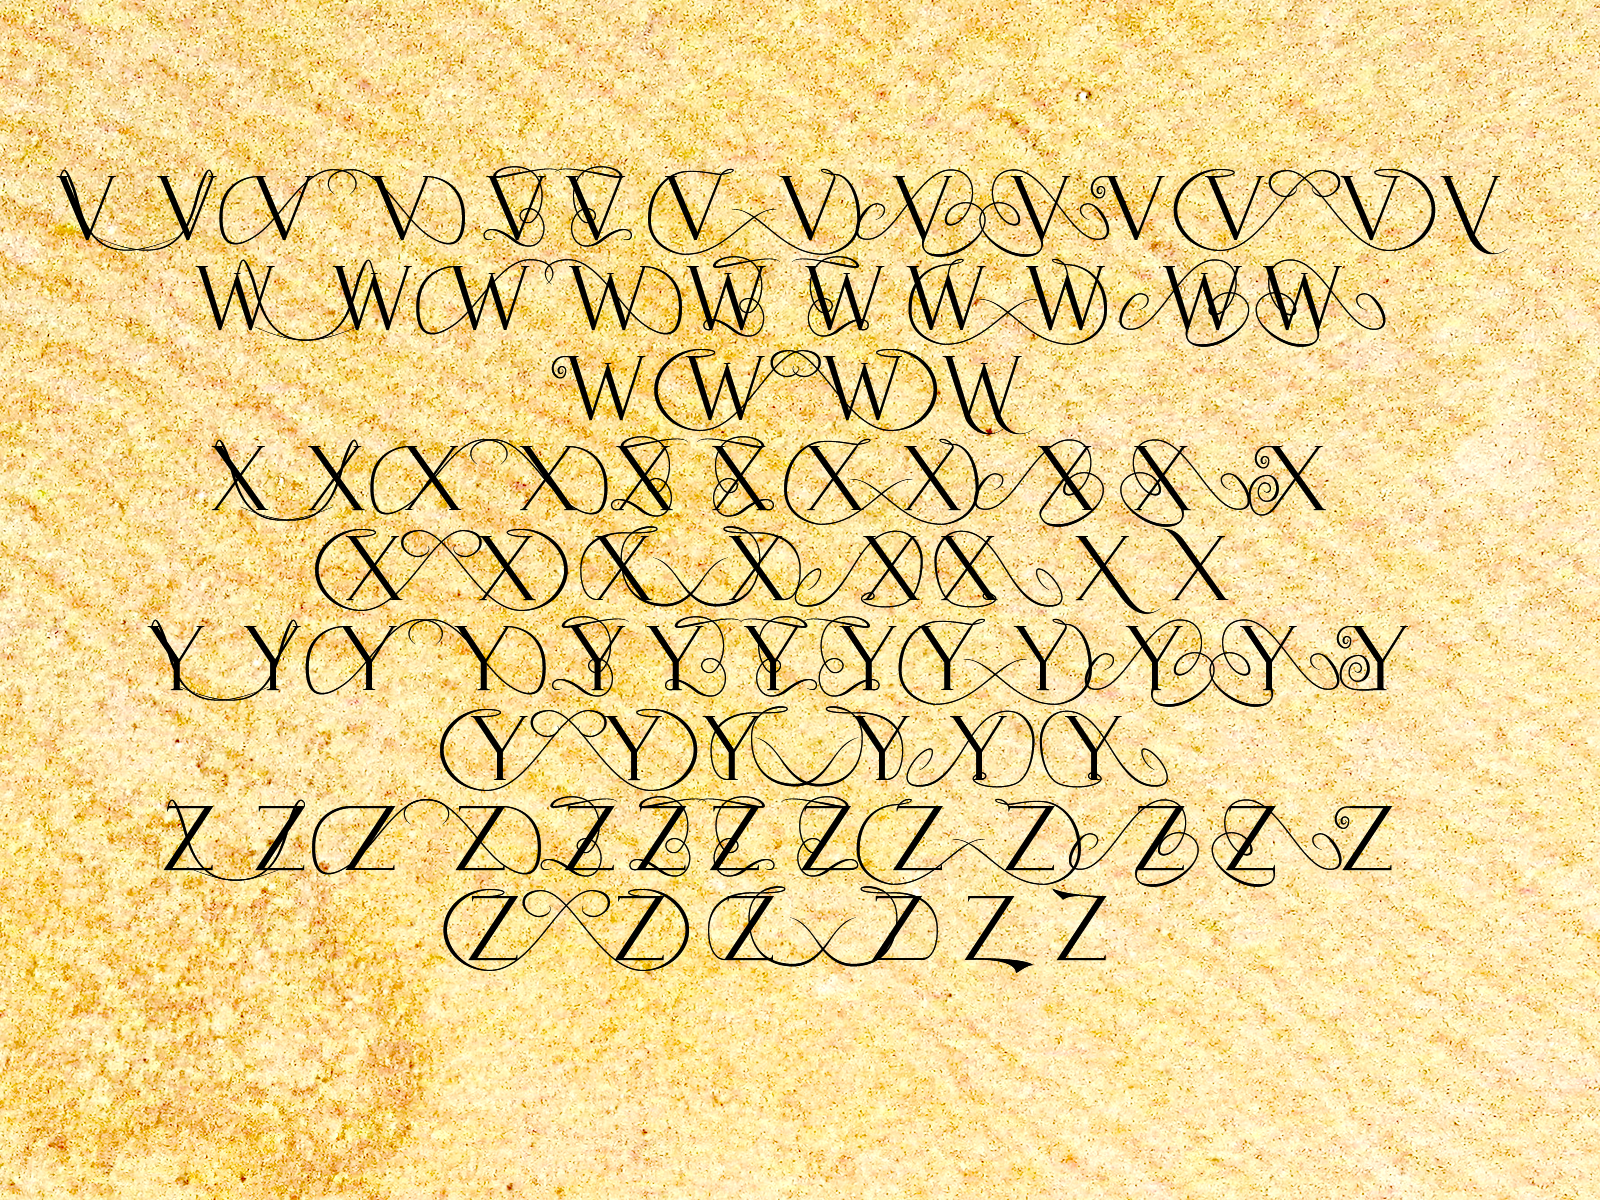 V V V V V V V V V V V V V V
W W W W W W W W W W
W W W W
X X X X X X X X X X X
X X X X X X X X
Y Y Y Y Y Y Y Y Y Y Y Y Y
Y Y Y Y Y Y
Z Z Z Z Z Z Z Z Z Z Z Z Z
Z Z Z Z Z Z